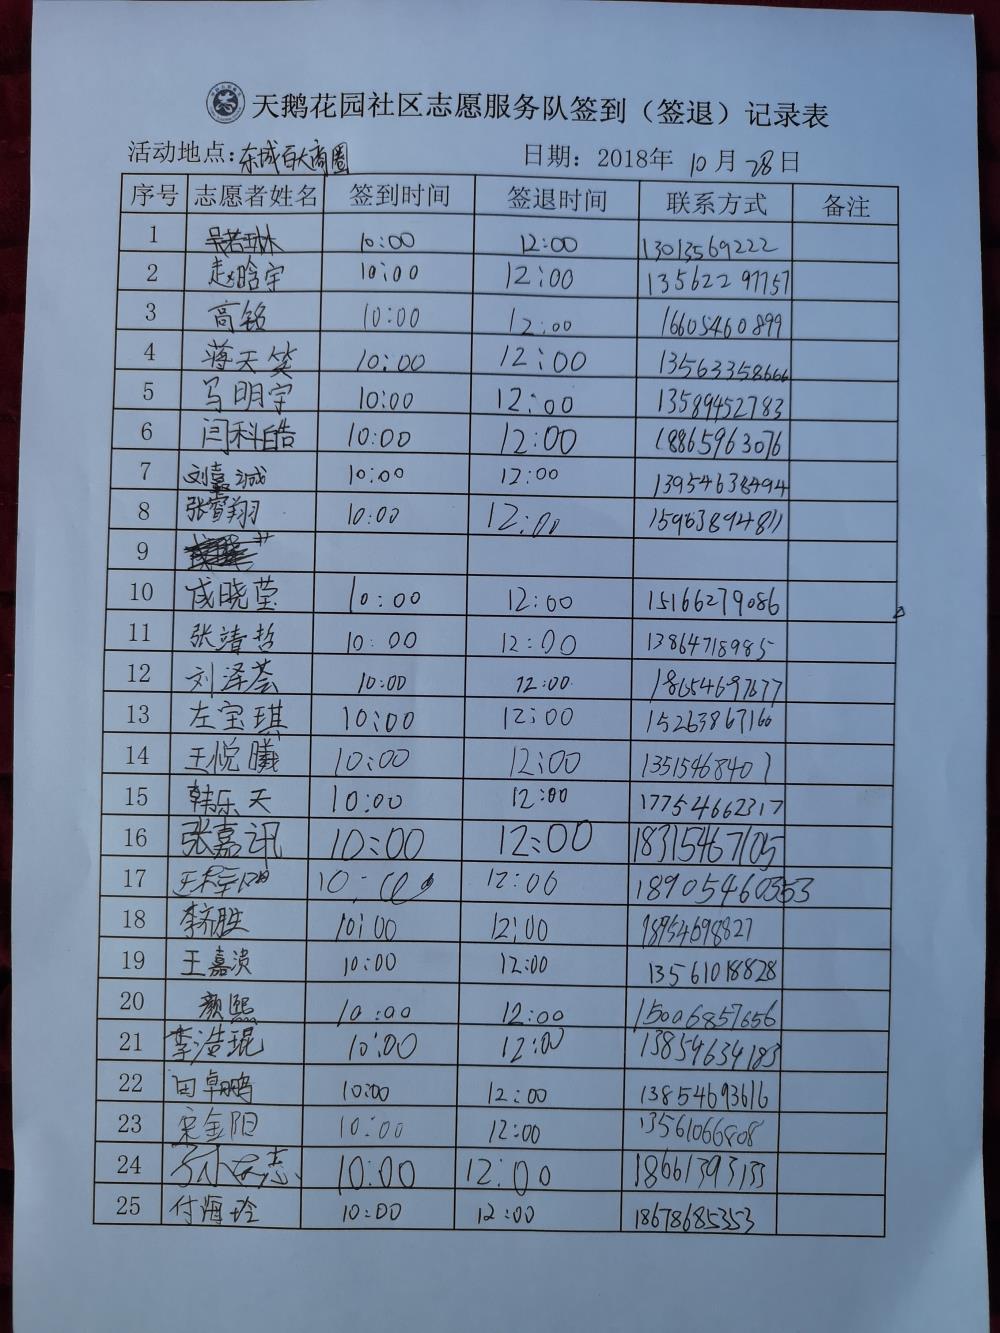 天鹅花园社区志愿服务队签到（签退）记录表
活动地点:东城百大商圈 日期：2018年 10月 28日
序号 志愿者姓名 签到时间 签退时间 联系方式 备注
1 吴若琳 10:00 12:00 13013569222
2 赵晗宇 10:00 12:00 13562297757
3 高铭 10:00 12:00 16605460899
4 蒋天笑 10:00 12:00 13563358666
5 马明宇 10:00 12:00 13589452783
6 闫科皓 10:00 12:00 18865963076
7 刘嘉诚 10:00 12:00 13954638494
8 张睿翔 10:00 12:00 15963894811
9
10 成晓莹 10:00 12:00 15166279086
11 张靖哲 10:00 12:00 13864718985
12 刘泽荟 10:00 12:00 18654697677
13 左宝琪 10:00 12:00 15263867166
14 王悦曦 10:00 12:00 13515468401
15 韩乐天 10:00 12:00 17754662317
16 张嘉讯 10:00 12:00 18315467105
17 12:00 18905460353
18 李齐胜 10:00 12:00 18954698827
19 王嘉 10:00 12:00 13561018828
20 颜熙 10:00 12:00 15006857656
21 李浩琨 10:00 12:00 13854634183
22 田卓鹏 10:00 12:00 13854693616
23 宋金阳 10:00 12:00 13561066808
24 10:00 12:00 18661393133
25 付海玲 10:00 12:00 18678685353